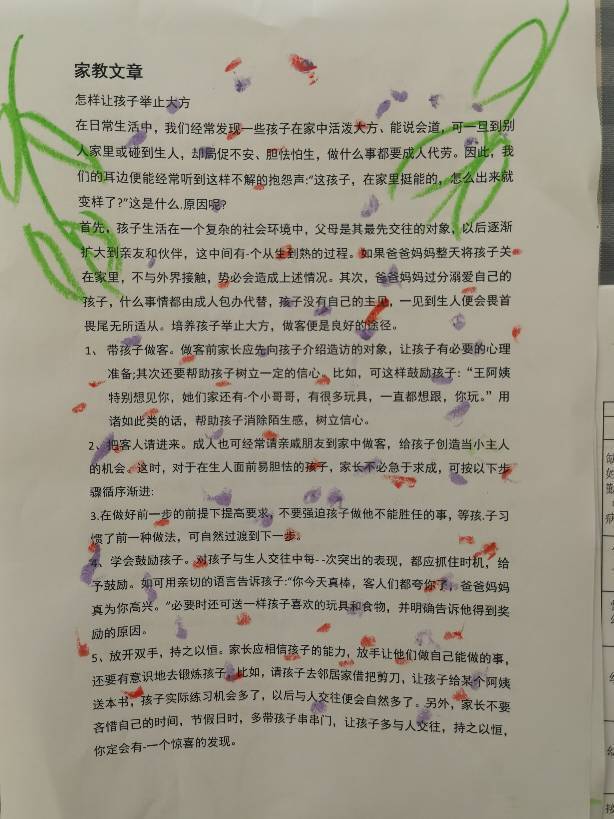 家教文章
怎样让孩子举止大方
在日常生活中，我们经常发现一些孩子在家中活泼大方、能说会道，可一旦到别
人家里或碰到生人，却局促不安、胆怯怕生，做什么事都要成人代劳。因此，我
们的耳边便能经常听到这样不解的抱怨声:“这孩子，在家里挺能的，怎么出来就
变样了?”这是什么.原因呢?
首先，孩子生活在一个复杂的社会环境中，父母是其最先交往的对象，以后逐渐
扩大到亲友和伙伴，这中间有-个从生到熟的过程。如果爸爸妈妈整天将孩子关
在家里，不与外界接触，势必会造成上述情况。其次，爸爸妈妈过分溺爱自己的
孩子，什么事情都由成人包办代替，孩子没有自己的主见，一见到生人便会畏首
畏尾无所适从。培养孩子举止大方，做客便是良好的途径。
1、 带孩子做客。做客前家长应先向孩子介绍造访的对象，让孩子有必要的心理
准备;其次还要帮助孩子树立一定的信心。比如，可这样鼓励孩子：“王阿姨
特别想见你，她们家还有-个小哥哥，有很多玩具，一直都想跟，你玩。”用
诸如此类的话，帮助孩子消除陌生感，树立信心。
2、把客人请进来。成人也可经常请亲戚朋友到家中做客，给孩子创造当小主人
的机会。这时，对于在生人面前易胆怯的孩子，家长不必急于求成，可按以下步
骤循序渐进:
3.在做好前一步的前提下提高要求，不要强迫孩子做他不能胜任的事，等孩.子习
惯了前一种做法，可自然过渡到下一步。
4、学会鼓励孩子。对孩子与生人交往中每--次突出的表现，都应抓住时机，给
予鼓励。如可用亲切的语言告诉孩子:“你今天真棒，客人们都夸你了，爸爸妈妈
真为你高兴。”必要时还可送一样孩子喜欢的玩具和食物，并明确告诉他得到奖
励的原因。
5、放开双手，持之以恒。家长应相信孩子的能力，放手让他们做自己能做的事，
还要有意识地去锻炼孩子。比如，请孩子去邻居家借把剪刀，让孩子给某个阿姨
送本书，孩子实际练习机会多了，以后与人交往便会自然多了。另外，家长不要
吝惜自己的时间，节假日时，多带孩子串串门，让孩子多与人交往，持之以恒，
你定会有-一个惊喜的发现。